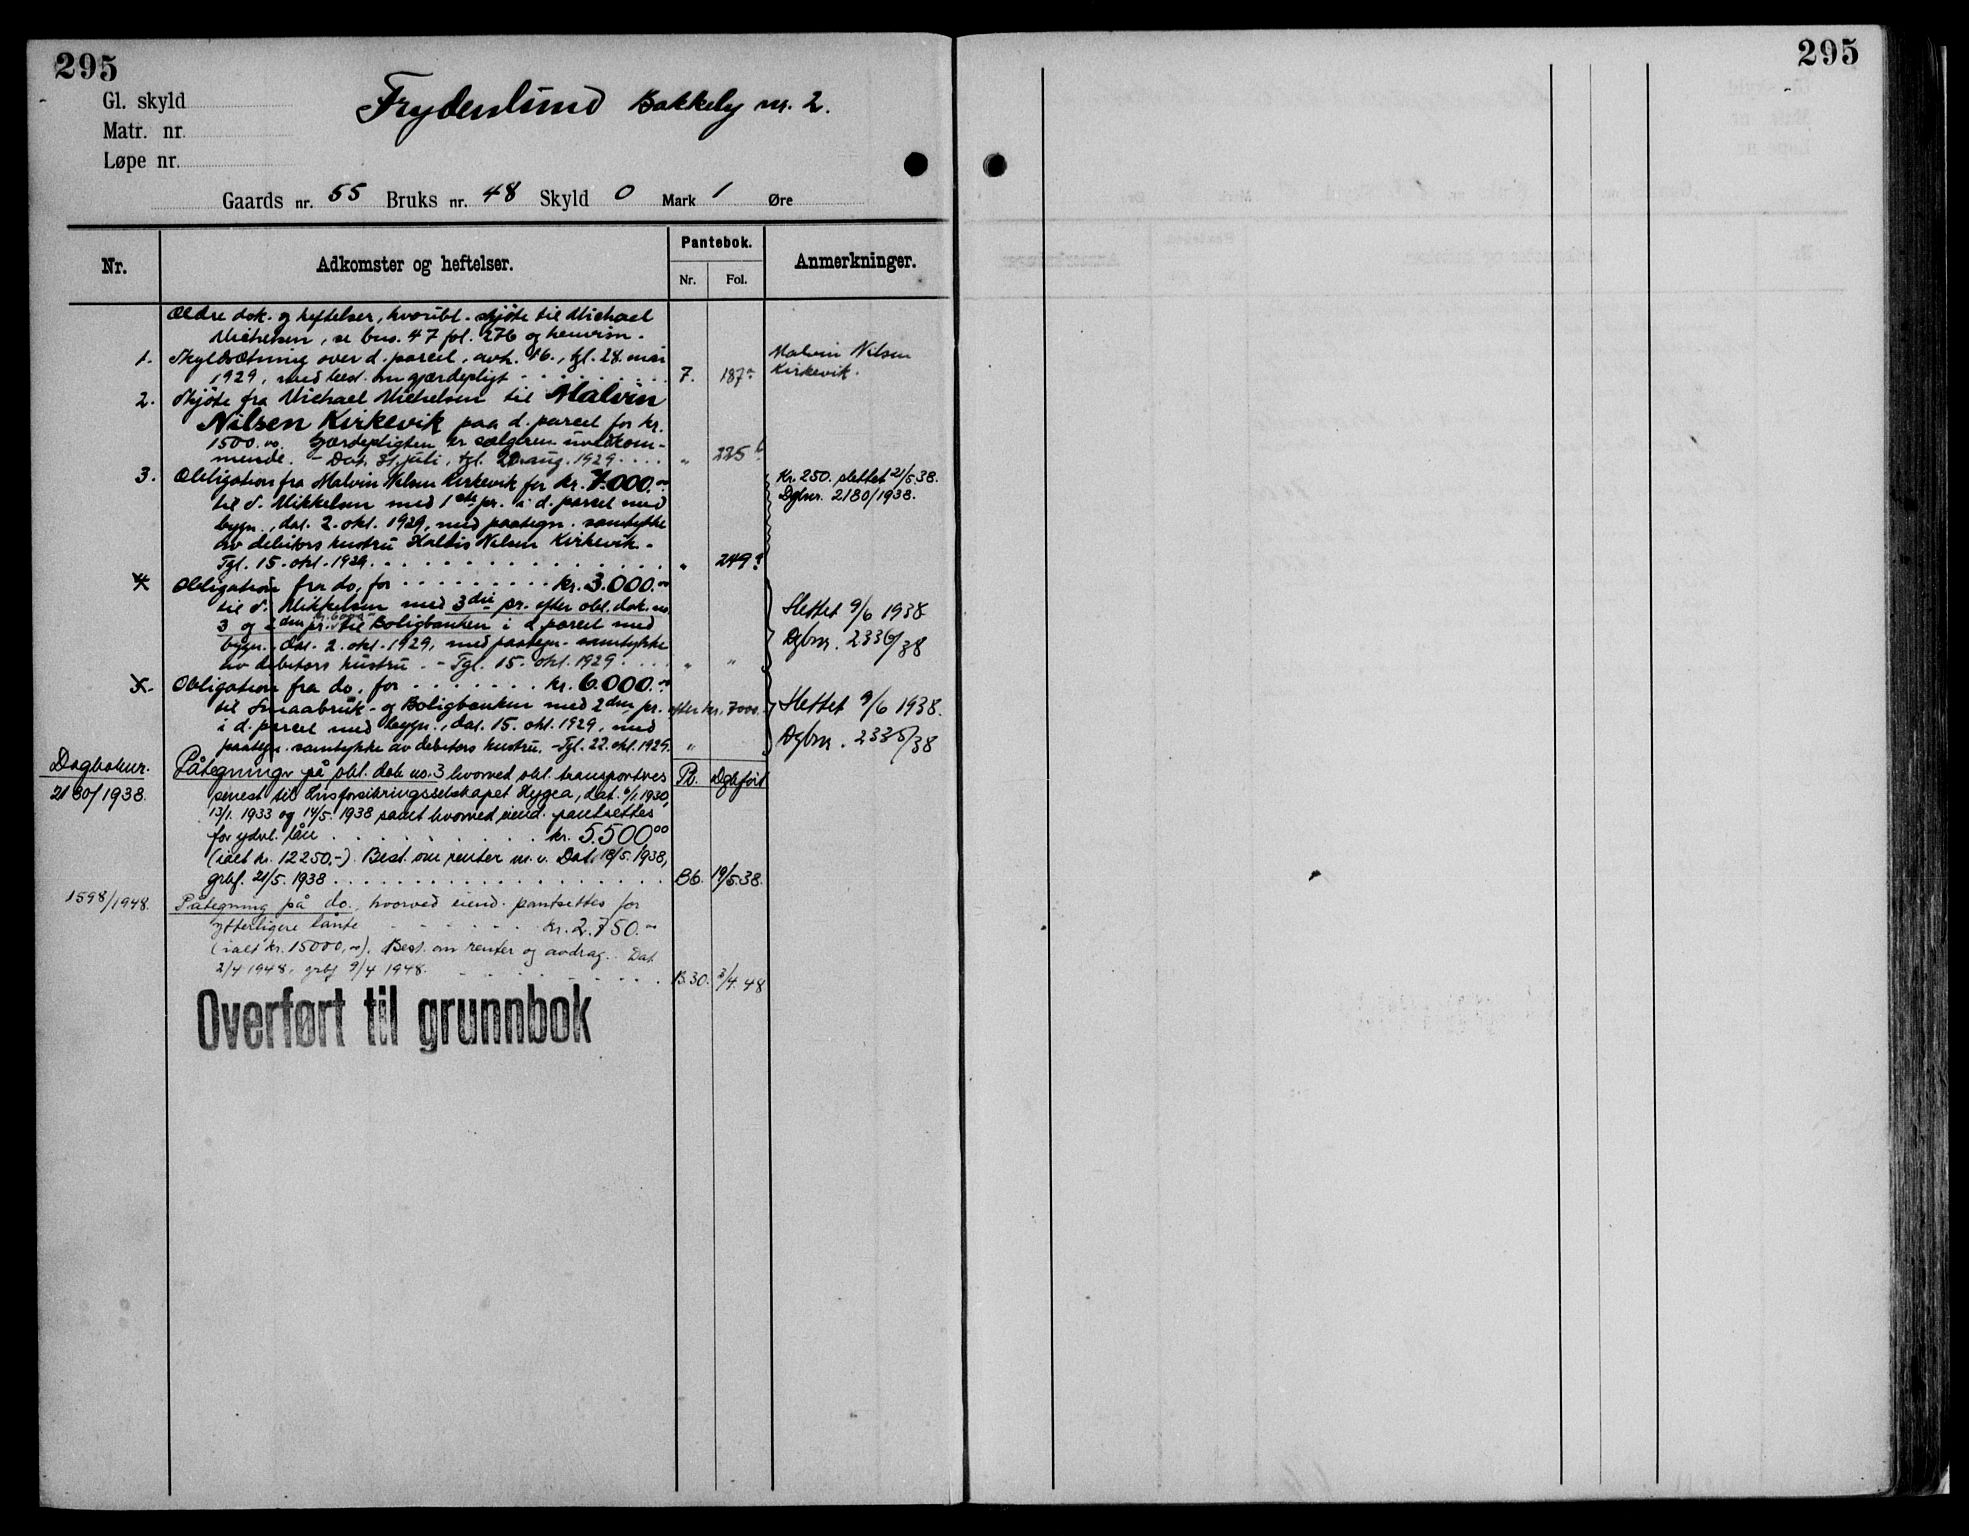 295
Gl. skyld
Matr. nr.
Løpe nr.
Frydenlund Bakkely nr. 2.
Gaards nr. 55 Bruks nr. 48 Skyld 0 Mark 1 Øre
Nr.
Adkomster og heftelser.
Pantebok.
Nr. Fol.
Anmerkninger.
Ældre dok. og heftelser, hvoribl. skjöte til Michael
Michelsen, se bnr. 47 fol. 276 og henvisn.
1. Skyldsætning over d. parcel, avh. 16., tgl. 28. mai
1929, med best. om gjærdepligt 7. 187
Malvin Nilsen
Kirkevik.
2. Skjöte fra Michael Michelsen til Malvin
Nilsen Kirkevik paa d. parcel for kr.
1500.00. Gjærdepligten er sælgeren uvedkom-
mende. - Dat. 31. juli, tgl. 20 aug. 1929 " 225 b
3. Obligation fra Malvin Nilsen Kirkevik for kr. 7.000.00
til S. Mikkelsen med 1ste pr. i d. parcel med
bygn., dat. 2. okt. 1929, med paategn. samtykke
av debitors hustru Haldis Nilsen Kirkevik.
Tgl. 15. okt. 1929 " 249
Kr. 250. slettet 21/5.38.
Dgbnr. 2180/1938.
4. Obligation fra do. for kr. 3.000.00
til S. Mikkelsen med 3die pr. efter obl. dok. nr.
3 og 2den pr. kr. 6000 til Boligbanken i d. parcel med
bygn., dat. 2. okt. 1929, med paategn. samtykke
av debitors hustru. - Tgl. 15. okt. 1929 " "
Slettet 9/6 1938
Dgbnr. 2336/38
5. Obligation fra do. for kr. 6.000.00
til Smaabruk- og Boligbanken med 2den pr. efter kr. 7000.
i d. parcel med bygn., dat. 15. okt. 1929, med
paategn. samtykke av debitors hustru. - Tgl. 22. okt. 1929. "
Slettet 9/6 1938.
Dgbnr. 2335/38
Dagboknr.
2180/1938.
Påtegninger på obl. dok. nr. 3 hvorved obl. transportres Pb. Dgbført
senest til Livsforsikringsselskapet Hygea, dat. 6/1. 1930,
13/1. 1933 og 14/5. 1938 samt hvorved eiend. pantsettes
for yderl. lån kr. 5.500.00
(ialt kr. 12250.-). Best. om renter m. v. Dat. 18/5. 1938,
grbf. 21/5. 1938 B6. 19/5.38.
1598/1948.
Påtegning på do., hvorved eiend. pantsettes for
ytterligere lånte kr. 2.750.00
(ialt kr. 15000,00). Best. om renter og avdrag. Dat.
2/4 1948, grbf 9/4 1948. B.30. 3/4.48
Overført til grunnbok
295